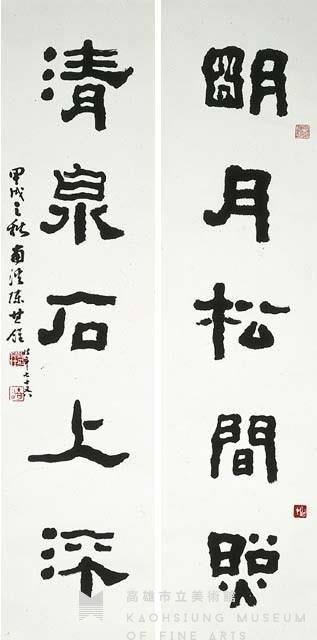 朙月松間照
清泉石上深
甲戌之秋 陳其銓
時年七十又八
高雄市立美術館
KAOHSIUNG MUSEUM
OF FINE ARTS